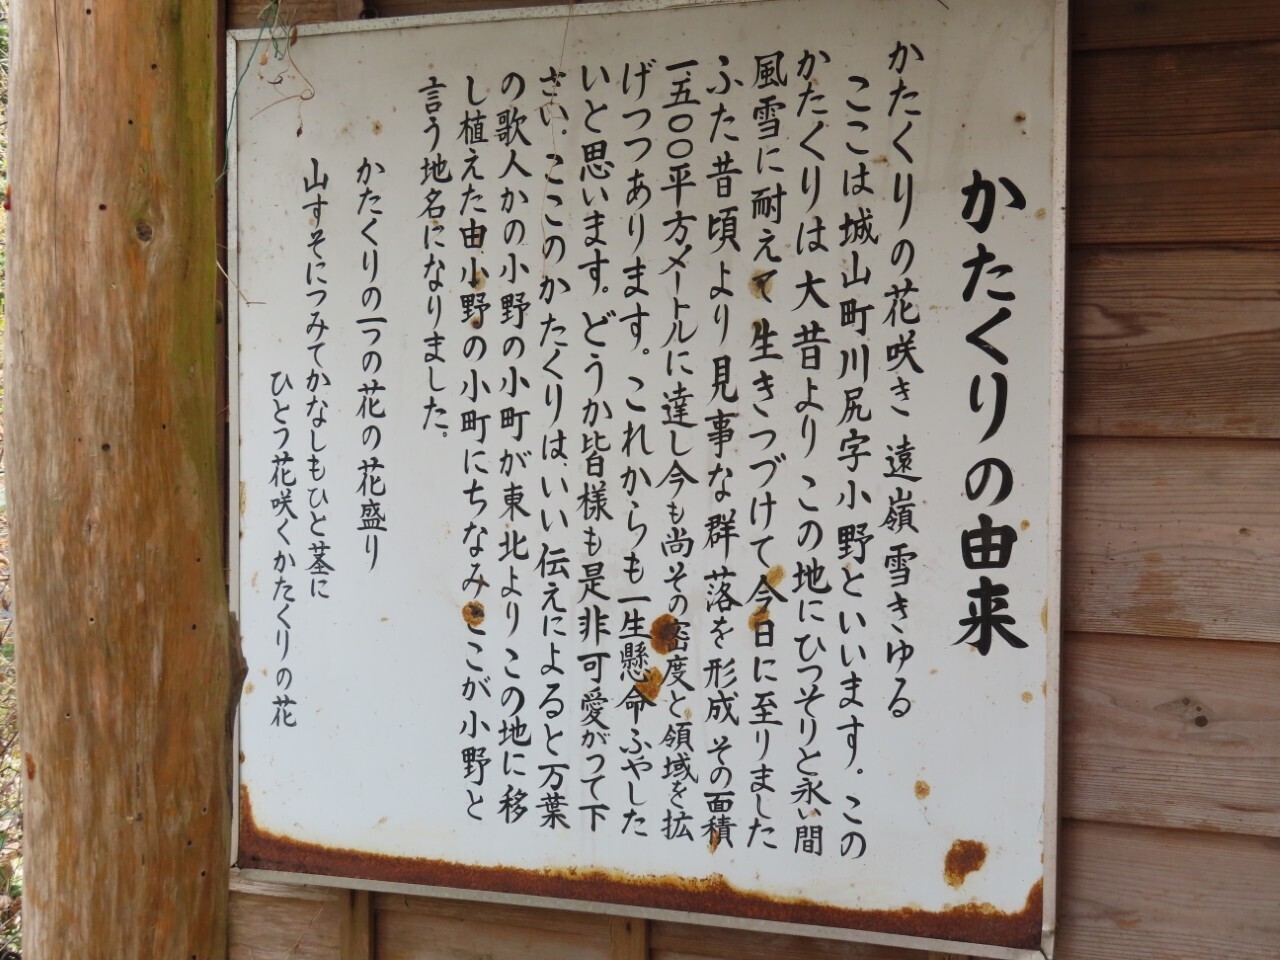 かたくりの由来
かたくりの花咲き 遠嶺雪きゆる
ここは城山町川尻字小野といいます。この
かたくりは大昔よりこの地にひっそりと永い間
風雪に耐えて生きつづけて今日に至りました
ふた昔頃より見事な群落を形成その面積
一五〇〇平方メートルに達し今も尚その密度と領域を拡
げつつあります。これからも一生懸命ふやした
いと思います。どうか皆様も是非可愛がって下
さい。ここのかたくりは、いい伝えによると万葉
の歌人かの小野の小町が東北よりこの地に移
し植えた由小野の小町にちなみここが小野と
言う地名になりました。
かたくりの一つの花の花盛り
山すそにつみてかなしもひと茎に
ひとつ花咲くかたくりの花